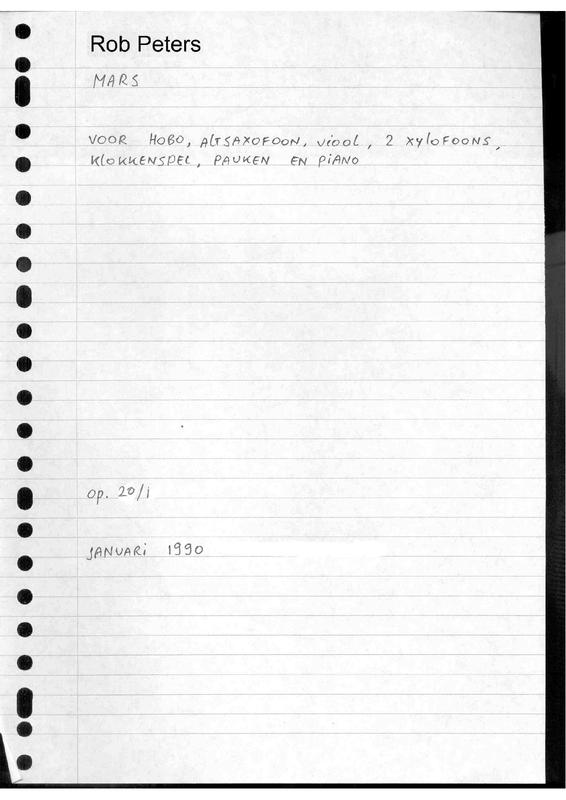 Rob Peters
MARS
VOOR HOBO, ALTSAXOFOON, viool, 2 XYLOFOONS,
KLOKKENSPEL, PAUKEN EN PIANO
op. 20/1
JANUARI 1990